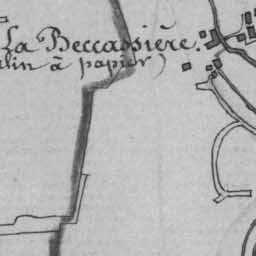 La Beccassière.
lin à papier)